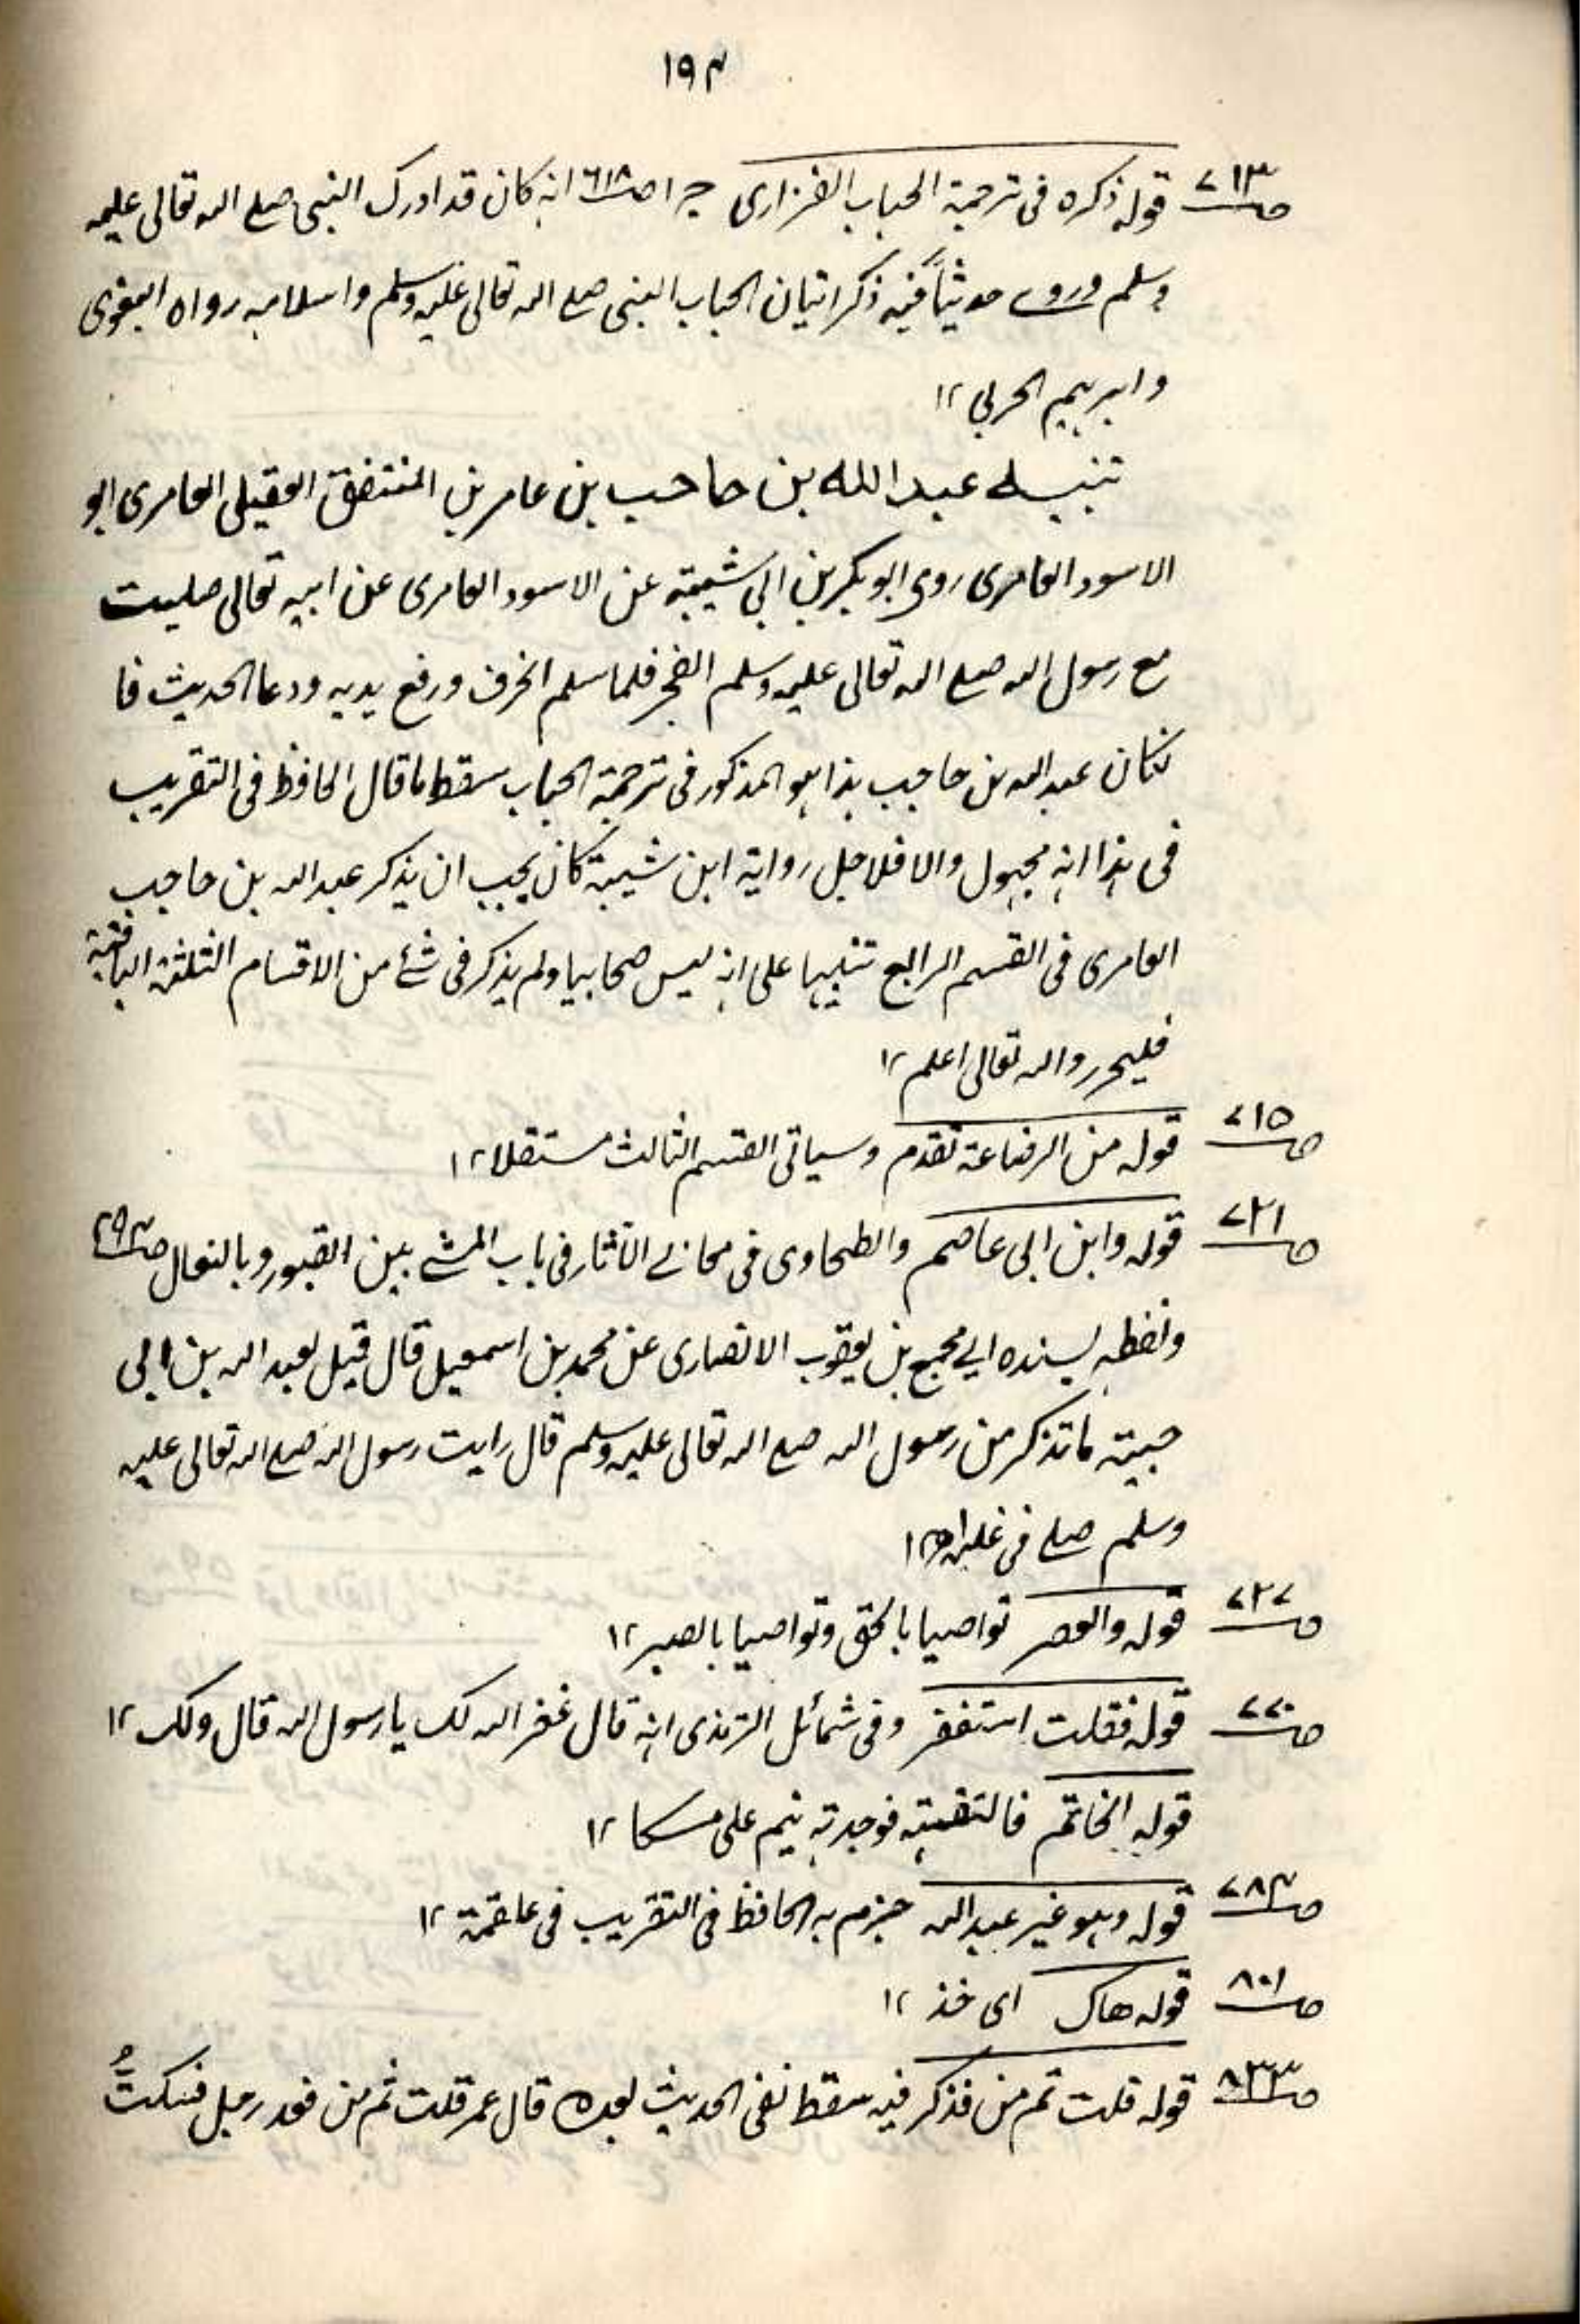 ١٩٣
ص٧١٣ قوله ذكره فى ترجمة الحباب الفزارى جـ ١ ص٦١٨ انه كان قد ادرك النبى صلے اللہ تعالى عليه
وسلم وروے حديثاً فيه ذكر اتيان الحباب النبى صلے اللہ تعالى عليه وسلم واسلامه رواه البغوى
وابرهيم الحربى ١٢
تنبيه عبد الله بن حاجب بن عامر بن المنتفق العقيلى العامرى ابو
الاسود العامرى روى ابو بكر بن ابى شيبة عن الاسود العامرى عن ابيه تعالى صليت
مع رسول اللہ صلے اللہ تعالى عليه وسلم الفجر فلما سلم انحرف ورفع يديه ودعا الحديث فا
نكان عبد اللہ بن حاجب هذا هو المذكور فى ترجمة الحباب سقط ما قال الحافظ فى التقريب
فى هذا انه مجهول والا فلاجل رواية ابن شيبة كان يجب ان يذكر عبد اللہ بن حاجب
العامرى فى القسم الرابع تنبيها على انه ليس صحابيا ولم يذكر فى شئ من الاقسام الثلثة الباقية
فليحرر واللہ تعالى اعلم ١٢
ص٧١٥ قوله من الرضاعة تقدم وسياتى القسم الثالث مستقلا ١٢
ص٧٢١ قوله وابن ابى عاصم والطحاوى فى معانے الآثار فى باب المشے بين القبور وبالنعال ص٢٩٣
ولفظه بسنده الے مجمع بن يعقوب الانصارى عن محمد بن اسمعيل قال قيل لعبد اللہ بن ابى
حبيبة ما تذكر من رسول اللہ صلے اللہ تعالى عليه وسلم قال رايت رسول اللہ صلے اللہ تعالى عليه
وسلم صلے فى نعليه اھ ١٢
ص٧٢٧ قوله والعصر تواصيا بالحق وتواصيا بالصبر ١٢
ص٧٧٠ قوله فقلت استغفر وفى شمائل الترمذى انه قال غفر اللہ لك يا رسول اللہ قال ولك ١٢
قوله الخاتم فالتقمته فوجدته ينم على مسكا ١٢
ص٧٨٣ قوله وهو غير عبد اللہ جزم به الحافظ فى التقريب فى علقمة ١٢
ص٨٠١ قوله هاك اى خذ ١٢
ص٨٣٣ قوله قلت ثم من فذكر فيه سقط نفى الحديث بعده قال عمر قلت ثم من فعد رجل فسكتُّ